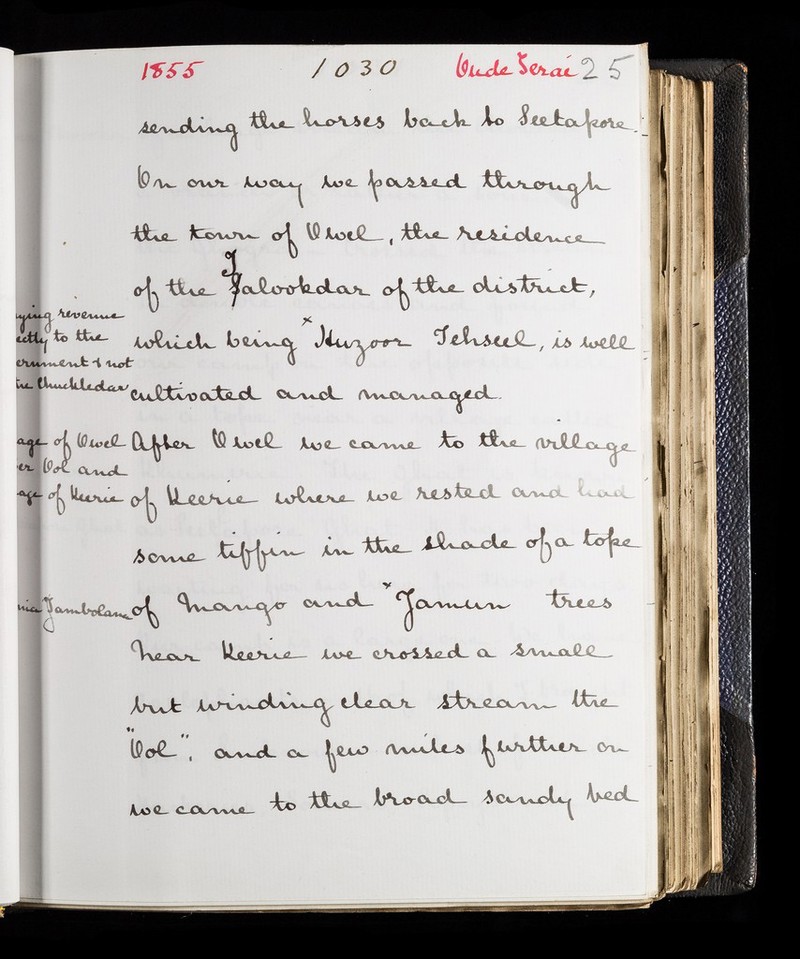 1855 1030 Oude Terai 25
sending the horses back to Seetapore.
On our way we passed through
the town of Owel, the residence
of the Talookdar of the district,
which being x Huzoor Tehseel, is well
cultivated and managed.
After Owel we came to the village
of Keerie where we rested and had
some tiffin in the shade of a tope
of Mango and x Jamun trees
Near Keerie we crossed a small
but winding clear stream the
"Ool", and a few miles further on
we came to the broad sandy bed
ying revenue
ectly to the
ernment & not
he Chuckledar
age of Owel
er Ool and
age of Keerie
nia Jambolana